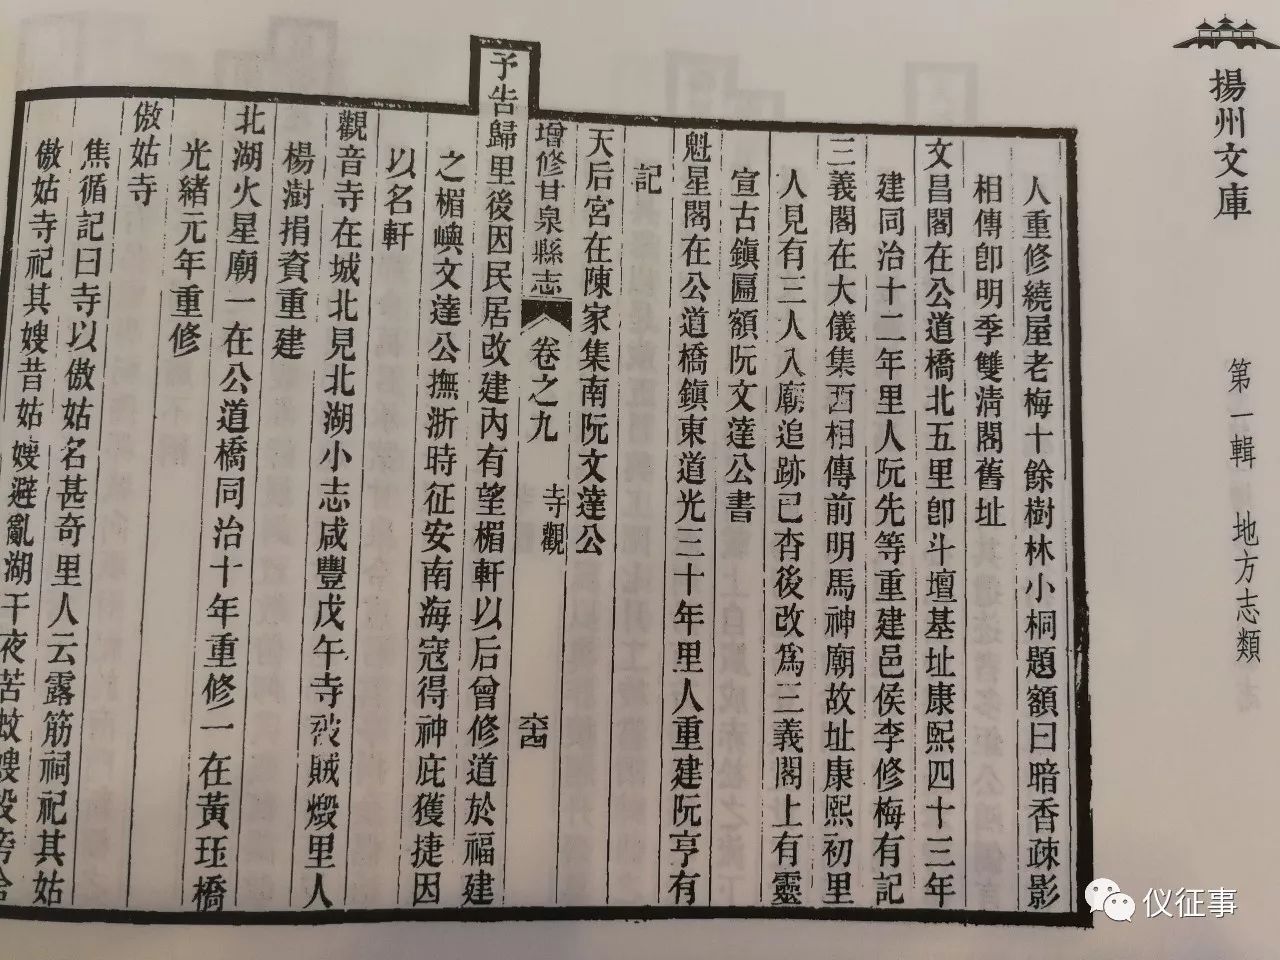 揚州文庫
第一輯 地方志類
人重修繞屋老梅十餘樹林小桐題額曰暗香疎影
相傳卽明季雙清閣舊址
文昌閣在公道橋北五里卽斗壇基址康熙四十三年
建同治十二年里人阮先等重建邑侯李修梅有記
三義閣在大儀集西相傳前明馬神廟故址康熙初里
人見有三人入廟追跡已杳後改爲三義閣上有靈
宣古鎮匾額阮文達公書
魁星閣在公道橋鎮東道光三十年里人重建阮亨有
記
天后宮在陳家集南阮文達公
增修甘泉縣志 卷之九 寺觀 六十四
予告歸里後因民居改建內有望楣軒以后曾修道於福建
之楣嶼文達公撫浙時征安南海寇得神庇獲捷因
以名軒
觀音寺在城北見北湖小志咸豐戊午寺被賊燬里人
楊澍捐資重建
北湖火星廟一在公道橋同治十年重修一在黃珏橋
光緒元年重修
傲姑寺
焦循記曰寺以傲姑名甚奇里人云露筋祠祀其姑
傲姑寺祀其嫂昔姑嫂避亂湖干夜苦蚊嫂投旁舍
仪征事